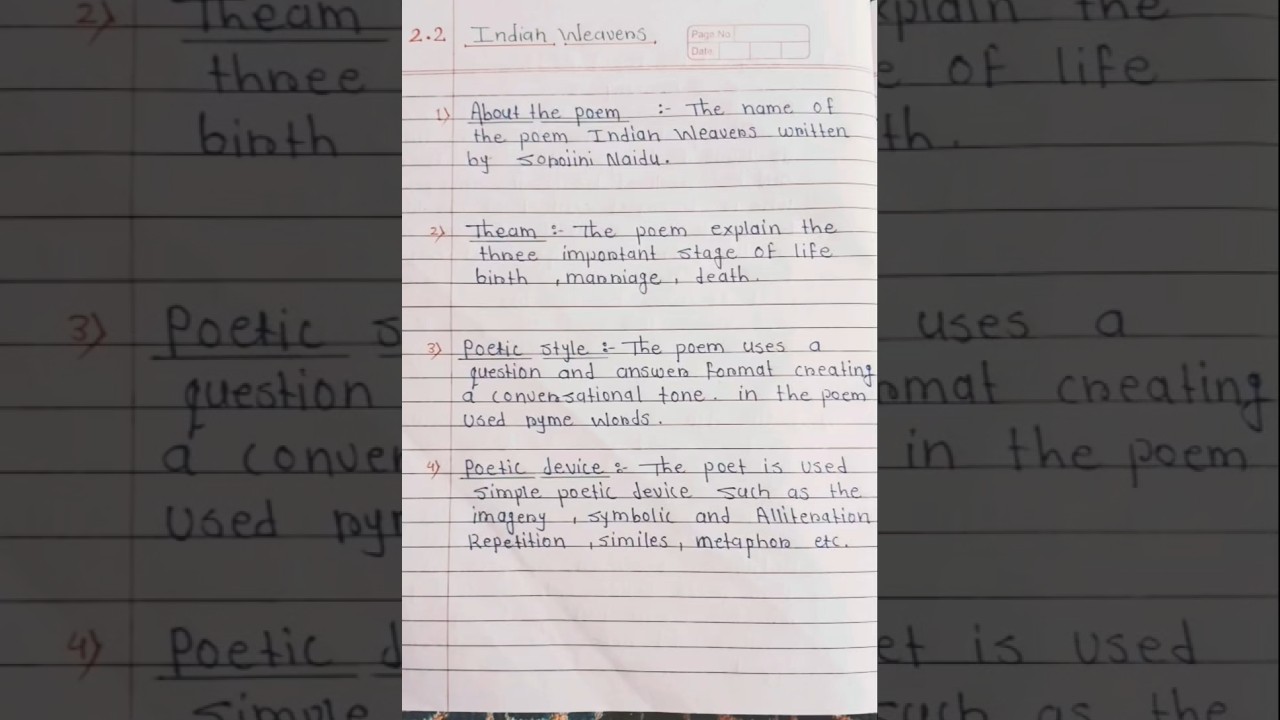 2.2 Indian Weavers.
Page No.
Date
1) About the poem :- The name of
the poem Indian Weavers written
by Sorojini Naidu.
2) Theam :- The poem explain the
three important stage of life
birth , marriage , death.
3) Poetic style :- The poem uses a
question and answer format creating
a conversational tone. in the poem
used ryme words.
4) Poetic device :- The poet is used
simple poetic device such as the
imagery , symbolic and Alliteration
Repetition , similes , metaphor etc.